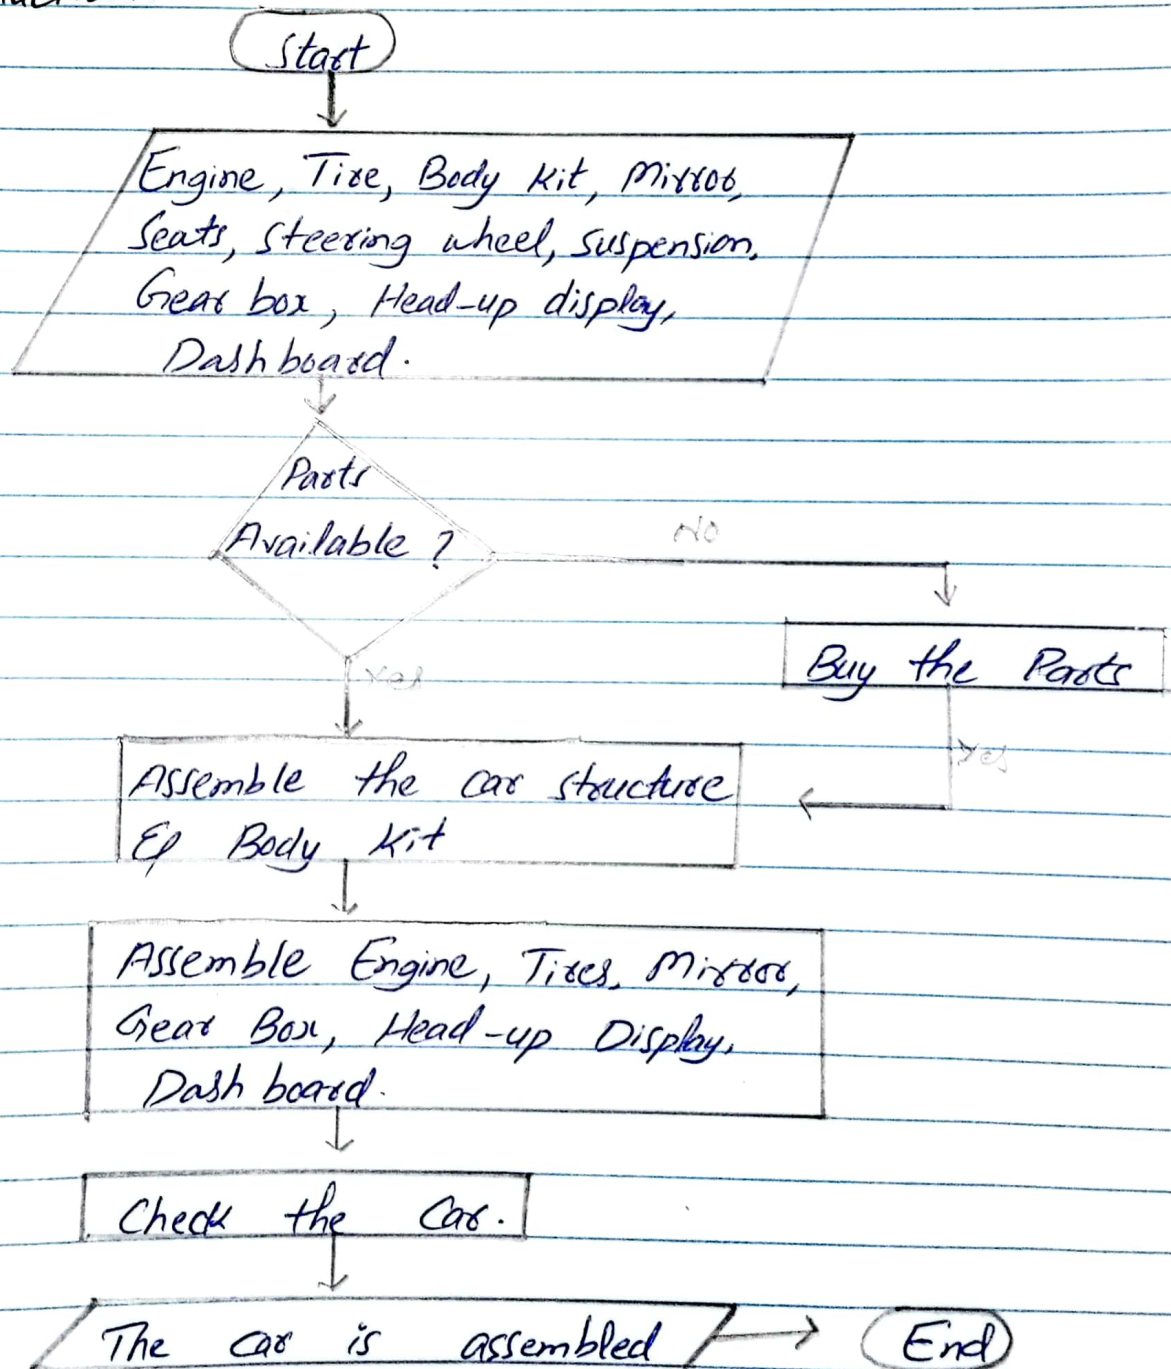 Start
Engine, Tire, Body Kit, Mirror,
Seats, Steering wheel, Suspension,
Gear box, Head-up display,
Dashboard.
Parts
Available ?
No
Buy the Parts
Yes
Yes
Assemble the car structure
& Body Kit
Assemble Engine, Tires, Mirror,
Gear Box, Head-up Display,
Dash board.
Check the Car.
The car is assembled
End